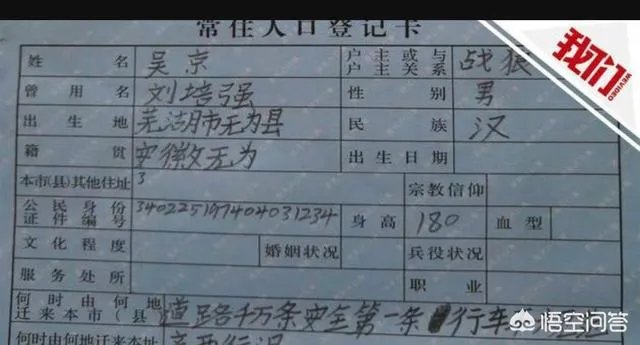 常住人口登记卡
我们
WEVIDEO
姓名 吴京 户主或与户主关系 战狼
曾用名 刘培强 性别 男
出生地 芜湖市无为县 民族 汉
籍贯 安徽无为 出生日期
本市(县)其他住址 3 宗教信仰
公民身份证件编号 340225197404031234 身高 180 血型
文化程度 婚姻状况 兵役状况
服务处所 职业
何时由何地迁来本市(县) 道路千万条安全第一条 行车
何时由何地迁来本址
悟空问答